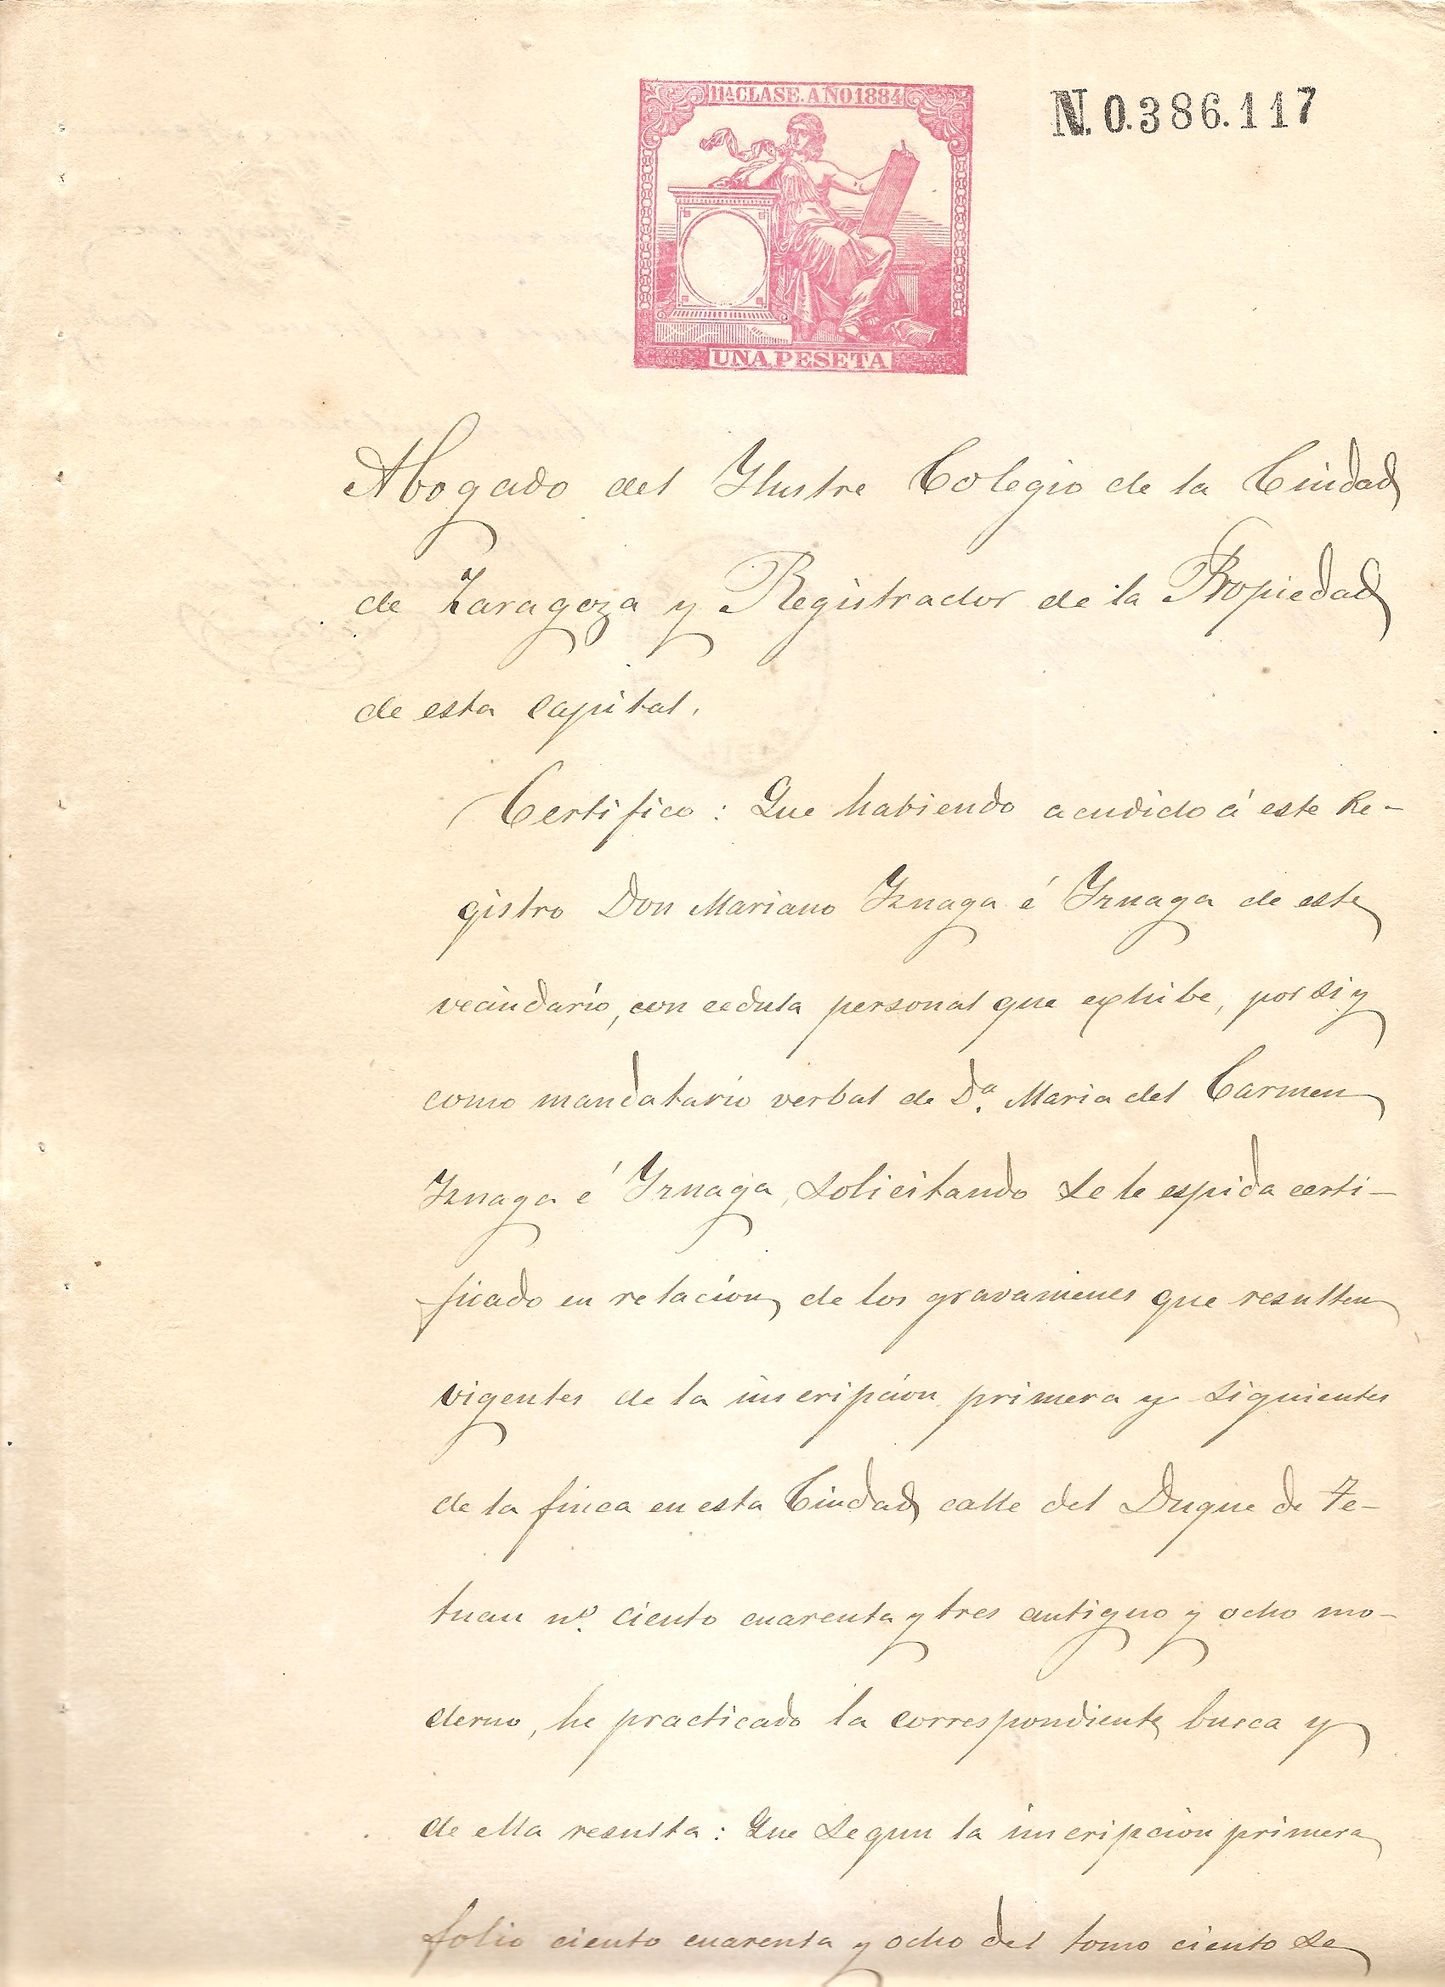 11ª CLASE. AÑO 1884
N. 0.386.117
UNA PESETA
Abogado del Ylustre Colegio de la Ciudad
de Zaragoza y Registrador de la Propiedad
de esta Capital.
Certifico: Que habiendo acudido á este Re-
gistro Don Mariano Yznaga é Yznaga de este
vecindario, con cedula personal que exhibe, por si y
como mandatario verbal de Dª. Maria del Carmen
Yznaga é Yznaga, solicitando se le espida certi-
ficado en relacion de los gravamenes que resulten
vigentes de la inscripcion primera y siguientes
de la finca en esta Ciudad calle del Duque de Te-
tuan nº. ciento cuarenta y tres antiguo y ocho mo-
derno, he practicado la correspondiente busca y
de ella resulta: Que segun la inscripcion primera
folio ciento cuarenta y ocho del tomo ciento se